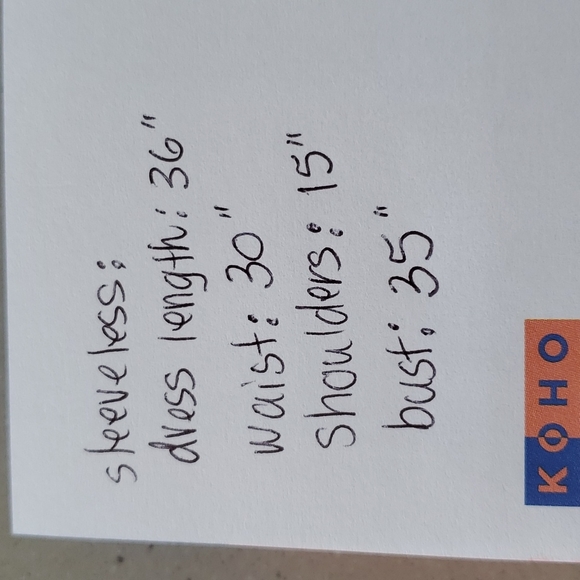 sleeveless:
dress length: 36"
waist: 30"
shoulders: 15"
bust: 35"
KOHO